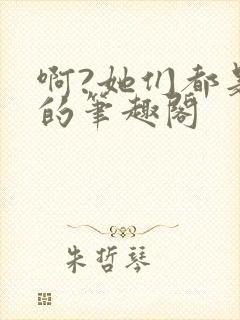 啊?她们都是
的笔趣阁
朱哲琴